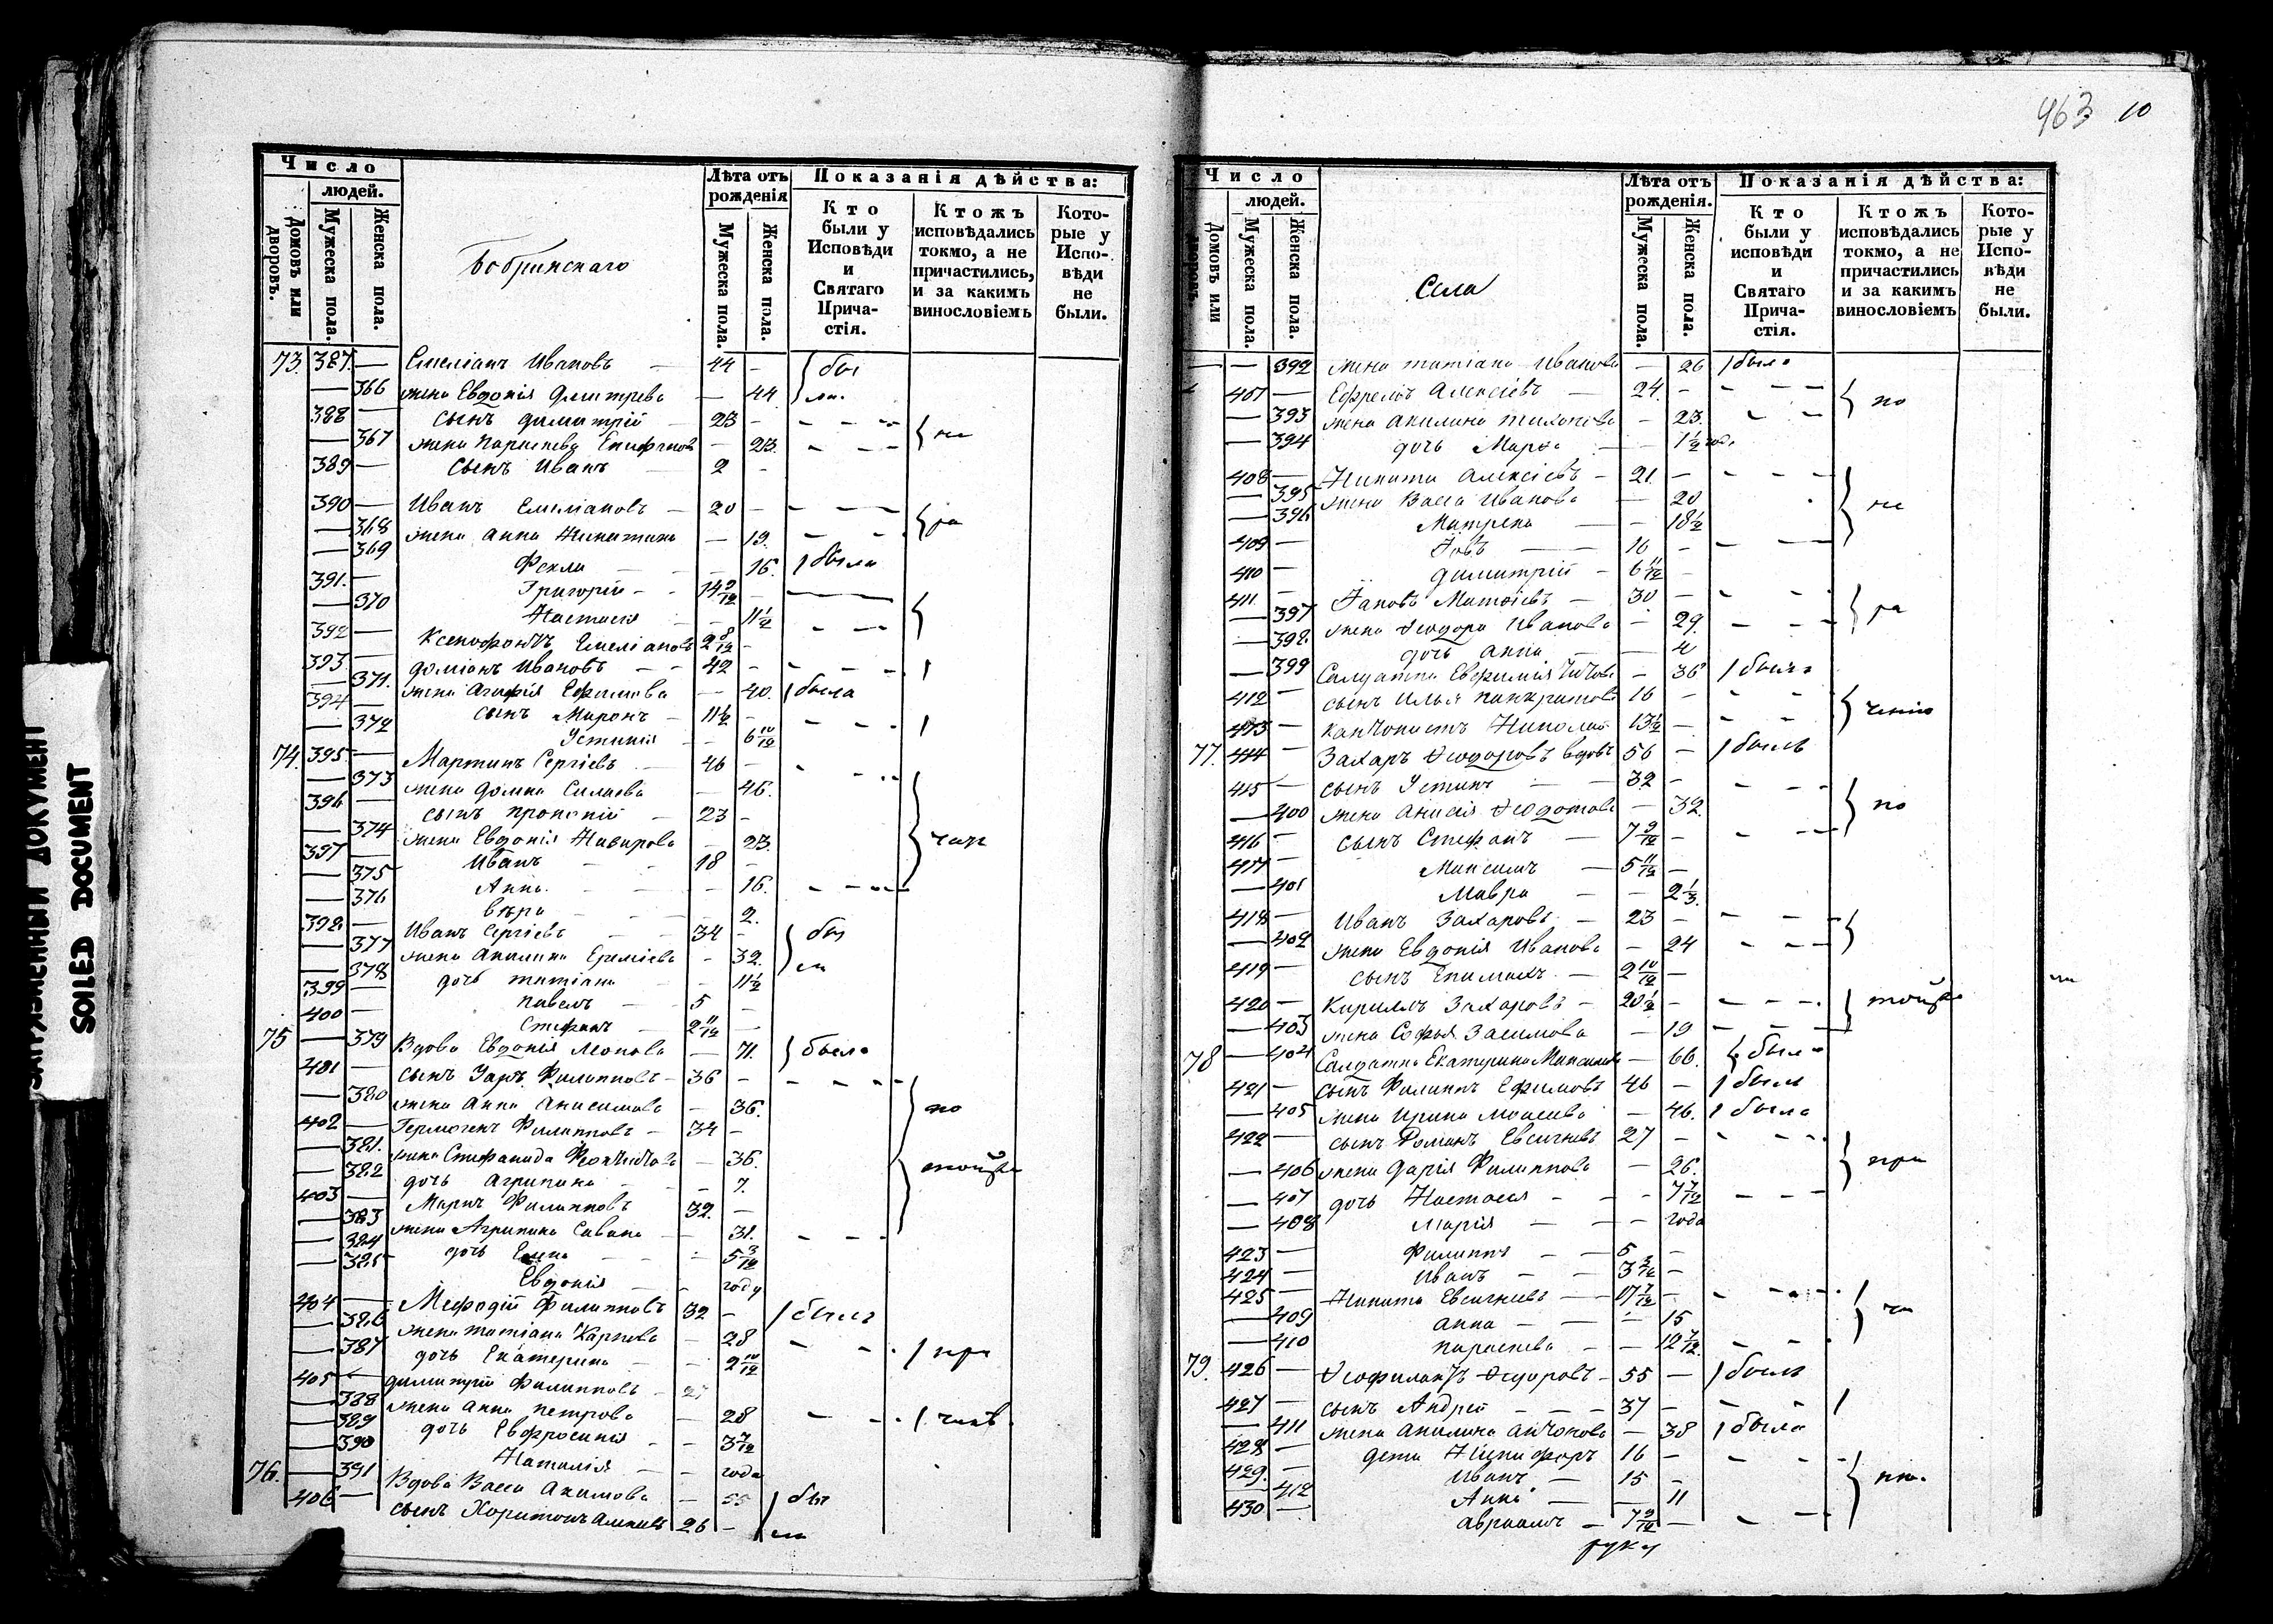 463 10
ЗАГРЯЗНЕННЫЙ ДОКУМЕНТ
SOILED DOCUMENT
Число
людей.
Домовъ или дворовъ.
Мужеска пола.
Женска пола.
Бобринскаго
Лѣта отъ рожденія
Мужеска пола.
Женска пола.
Показанія дѣйства:
Кто были у Исповѣди и Святаго Прича-стія.
Ктожъ исповѣдались токмо, а не причастились, и за какимъ винословіемъ
Кото-рые у Испо-вѣди не были.
73. 387. — Емеліанъ Ивановъ — 44 — бы
— 366 жена Евдокія Дмитрева — 44 ли.
388 — сынъ Димитрій — 23 —
— 367 жена Параскева — 23. не
389 — сынъ Иванъ 2 —
390 — Иванъ Емеліановъ — 20 —
— 368 жена Анна Никитина — 19. ра
— 369 Фекла — 16. была
391. — Григорій — 14 2/12 —
— 370 Настасія — 11 1/2
392 — Ксенофонтъ Емеліановъ 2 8/12 —
393 — Доміанъ Ивановъ — 42 —
— 371. жена Агафія Ефимова — 40. была
394 — сынъ Миронъ — 11 1/2 —
— 372 Устинія — 6 10/12
74. 395 — Мартинъ Сергіевъ — 46 —
— 373 жена Домна Силаева — 46.
396 — сынъ Прокопій — 23 —
— 374 жена Евдокія — 23. част
397 — Иванъ 18 —
— 375 Анна — 16.
— 376 Вѣра — 2.
398 — Иванъ Сергіевъ 34 — бы
— 377 жена Акилина Еремеева — 32. ли
— 378 дочь Татіана — 11 1/2
399 — Павелъ 5 —
400 — Стефанъ 2 11/12 —
75 — 379 Вдова Евдокія Леонова — 71. была
401 — сынъ Уаръ Филипповъ — 36 —
— 380 жена Анна Анисимова — 36. по
402 — Гермогенъ Филипповъ — 34 —
— 381. жена Стефанида — 36.
— 382 дочь Агрипина — 7.
403 — Маркъ Филипповъ 32. —
— 383 жена Агрипина Савина — 31.
— 384 дочь Елена — 5 3/12
— 385 Евдокія — году
404 — Мефодій Филипповъ 32 — былъ
— 386 жена Татіана Карпова — 28
— 387 дочь Екатерина — 2 10/12 при
405 — Димитрій Филипповъ —
— 388 жена Анна Петрова — 28
— 389 дочь Евфросинія — 3 7/12
— 390 Наталія — года
76. — 391 Вдова Васса Акимова — 55 бы
406 — сынъ Харитонъ 26 — ли
Число
людей.
Домовъ или дворовъ.
Мужеска пола.
Женска пола.
Села
Лѣта отъ рожденія.
Мужеска пола.
Женска пола.
Показанія дѣйства:
Кто были у исповѣди и Святаго Прича-стія.
Ктожъ исповѣдались токмо, а не причастились и за какимъ винословіемъ
Кото-рые у Испо-вѣди не были.
— — 392 жена Татіана Иванова — 26 была
407 — Ефремъ Алексіевъ — 24. —
— 393 жена Акилина Тихонова — 23. по
— 394 дочь Марѳа — 1 1/2 года
408 — Никита Алексіевъ — 21. —
— 395 жена Васса Иванова — 20
— 396 Матрена — 18 1/2 не
409 — Іовъ — 16 —
410 — Димитрій — 6 11/12 —
411 — Іаковъ Матѳіевъ — 30 —
— 397 жена Ѳеодора Иванова — 29. ра
— 398. дочь Анна — 4
— 399 Салдатка Евфимія — 36 была
412 — сынъ Илья Панкратовъ 16 —
413 — Николай 13 1/2 — чению
77. 414 — Захаръ Ѳеодоровъ вдовъ 56 — былъ
415 — сынъ Устинъ — 32 —
— 400 жена Анисія Ѳедотова — 32. по
416 — сынъ Стефанъ — 7 9/12 —
417 — Максимъ — 5 11/12 —
— 401 Мавра — 2 1/3.
418 — Иванъ Захаровъ — 23 —
— 402 жена Евдокія Иванова — 24
419 — сынъ Епимахъ — 2 10/12 —
420 — Кирилъ Захаровъ — 20 1/2 —
— 403 жена Софья Засимова — 19
78 — 404 Салдатка Екатерина — 66. была
421 — сынъ Филипъ Ефимовъ 46 — былъ
— 405 жена Ирина Моисеева — 46. была
422 — сынъ Романъ Евсигнеевъ 27 —
— 406 жена Дарія Филиппова — 26. при
— 407 дочь Настасія — 7 7/12
— 408 Марія — года
423 — Филиппъ — 5 —
424 — Иванъ — 3 —
425 — Никита Евсигнеевъ — 17 7/12 —
— 409 Анна — 15 ча
— 410 Параскева — 12 7/12.
79. 426 — Ѳеофилактъ Ѳедоровъ — 55 — былъ
427 — сынъ Андрей — 37 —
— 411 жена Акилина Антонова — 38 была
428 — дети Никифоръ 16 —
429. — Иванъ — 15 —
— 412 Анна — 11
430 — Авраамъ — 7 9/12 —
руку